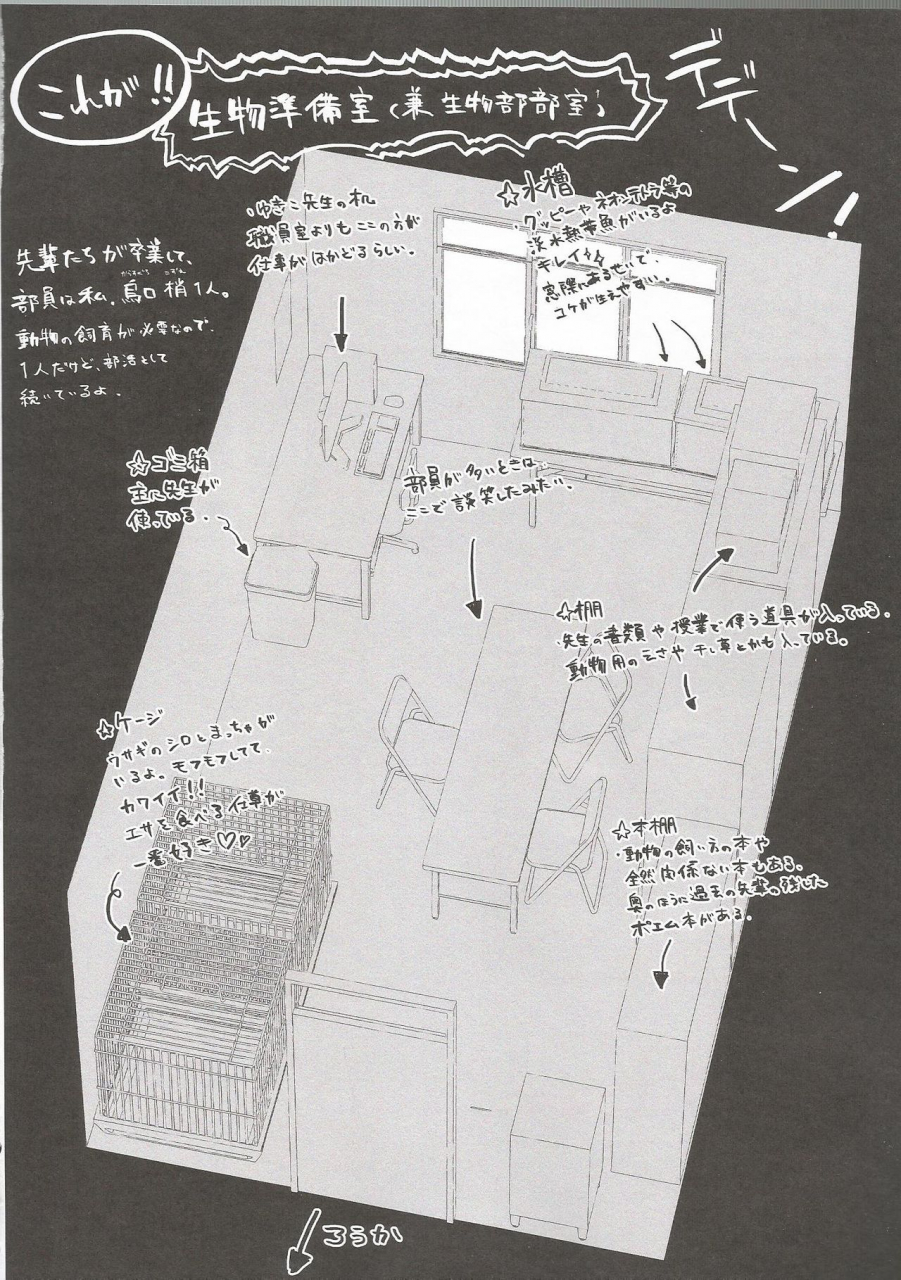 これが!!
生物準備室(兼 生物部部室)
デデーン!
先輩たちが卒業して、
部員は私、烏口 梢 1人。
からすぐち こずえ
動物の飼育が必要なので、
1人だけど、部活として
続いているよ。
・ゆきこ先生の机
職員室よりもここの方が
仕事がはかどるらしい。
☆水槽
・グッピーやネオンテトラ等の
淡水熱帯魚がいるよ
キレイ
窓際にあるせいで、
コケが生えやすい。。
☆ゴミ箱
主に先生が
使っている。
部員が多いときは
ここで談笑したみたい。
☆棚
・先生の書類や授業で使う道具が入っている。
動物用のえさや干し草とかも入っている。
☆ケージ
ウサギのシロとまっちゃが
いるよ。モフモフしてて
カワイイ!!
エサを食べる仕草が
一番好き♡♡
☆本棚
・動物の飼い方の本や
全然関係ない本もある。
奥のほうに過去の先輩の残した
ポエム本がある。
ろうか